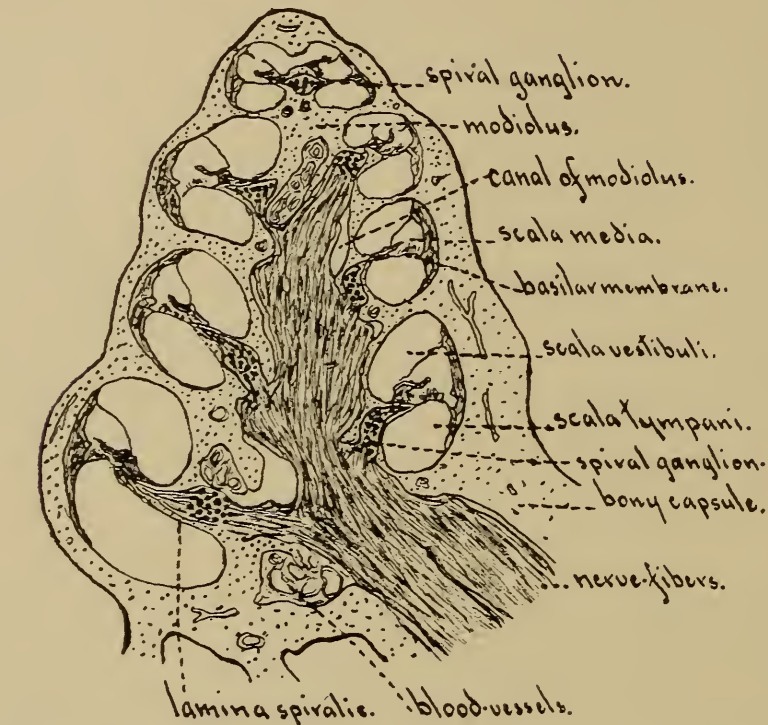 spiral ganglion.
modiolus.
canal of modiolus.
scala media.
basilar membrane.
scala vestibuli.
scala tympani.
spiral ganglion.
bony capsule.
nerve-fibers.
lamina spiralis.
blood-vessels.